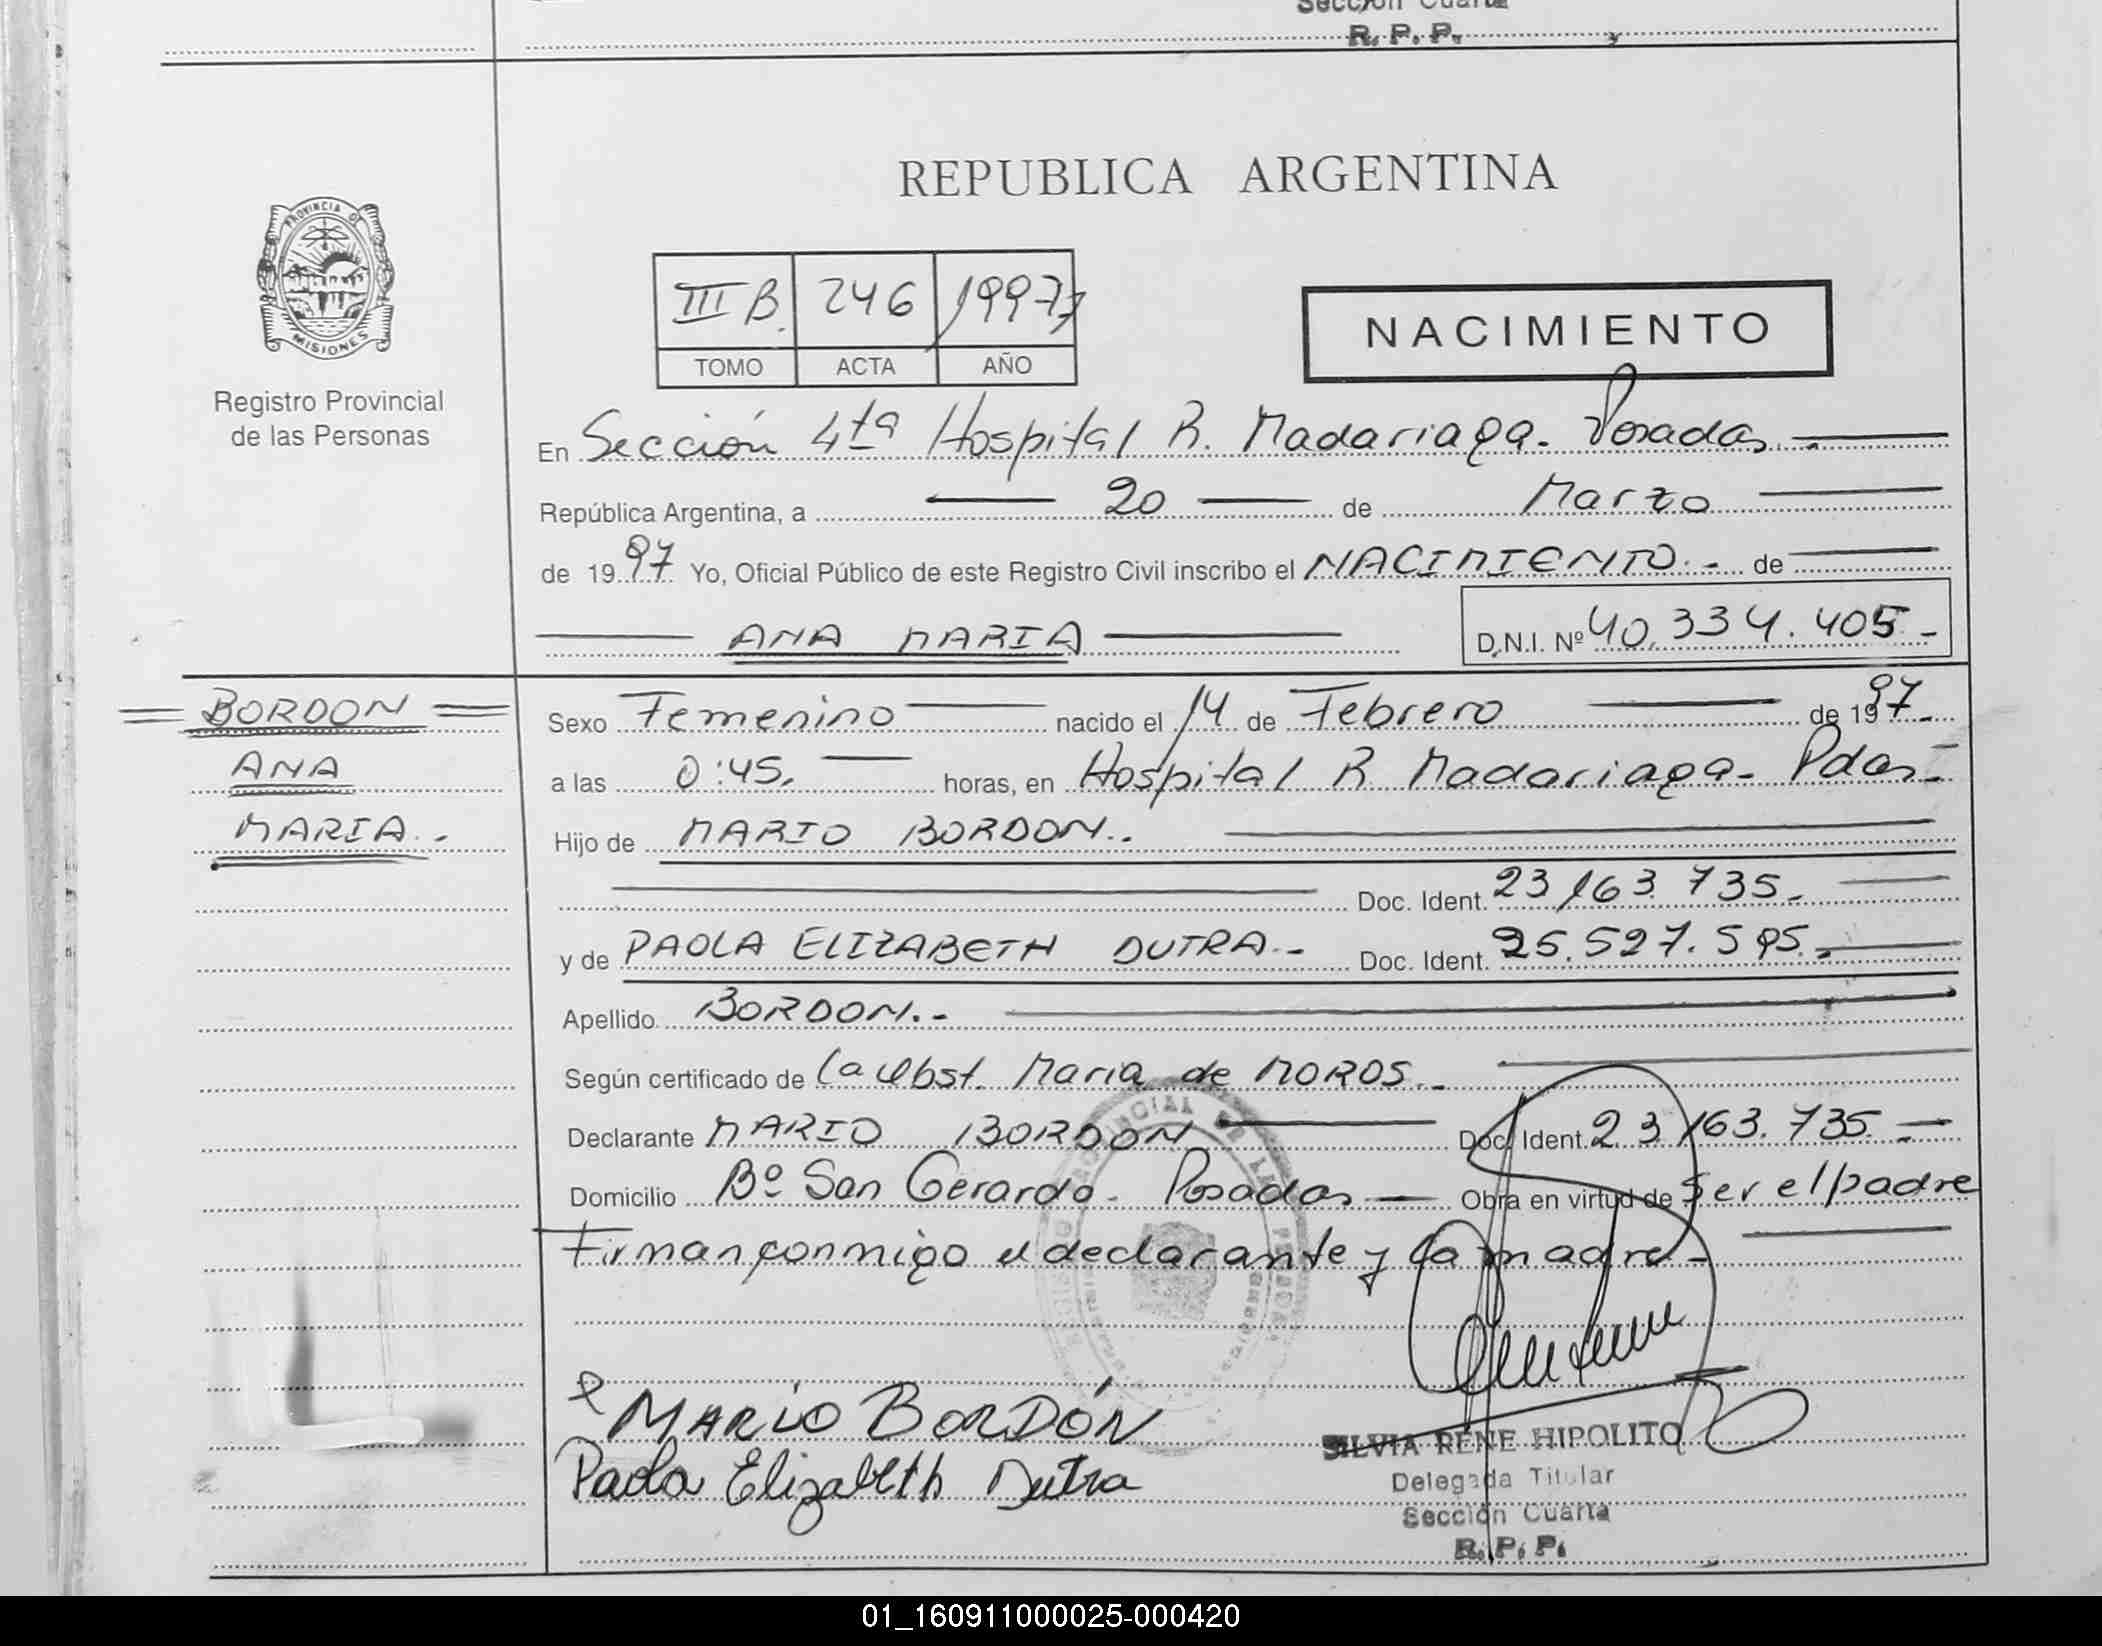 Sección Cuarta
R. P. P.
REPUBLICA ARGENTINA
PROVINCIA DE
MISIONES
Registro Provincial
de las Personas
III B. 246 1997
TOMO ACTA AÑO
NACIMIENTO
En Sección 4ta Hospital R. Madariaga. Posadas.
República Argentina, a 20 de Marzo
de 1997 Yo, Oficial Público de este Registro Civil inscribo el NACIMIENTO.- de
ANA MARIA D.N.I. Nº 40.334.405-
BORDON
ANA
MARIA.-
Sexo Femenino nacido el 14 de Febrero de 1997.-
a las 0:45. horas, en Hospital R. Madariaga- Pdas.-
Hijo de MARIO BORDON..
Doc. Ident. 23163.735.-
y de PAOLA ELIZABETH DUTRA.- Doc. Ident. 25.527.595.-
Apellido BORDON.-
Según certificado de la Obst. Maria de MOROS.-
Declarante MARIO BORDON Doc. Ident. 23163.735.-
Domicilio Bº San Gerardo- Posadas Obra en virtud de ser el padre
Firman conmigo el declarante y la madre-
MARIO BORDÓN
Paola Elizabeth Dutra
SILVIA RENE HIPOLITO
Delegada Titular
Sección Cuarta
R. P. P.
01_160911000025-000420